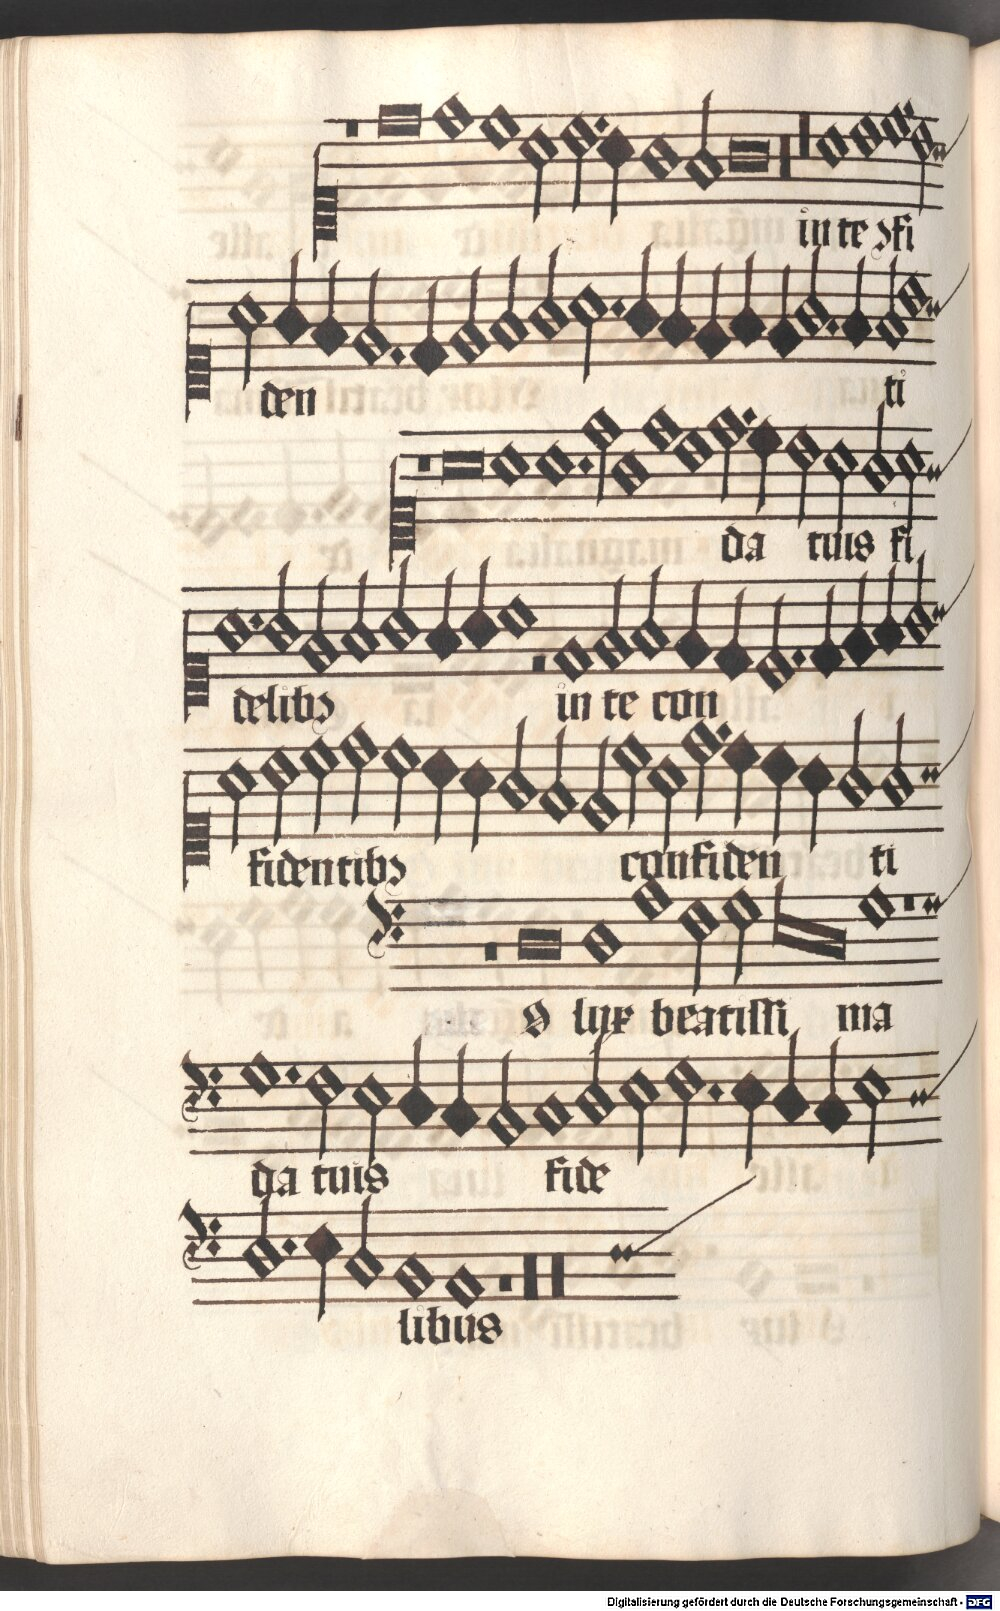 in te ꝯfi
den ti
da tuis fi
delibꝫ in te con
fidentibꝫ confiden ti
O lux beatissi ma
da tuis fide
libus
Digitalisierung gefördert durch die Deutsche Forschungsgemeinschaft - DFG